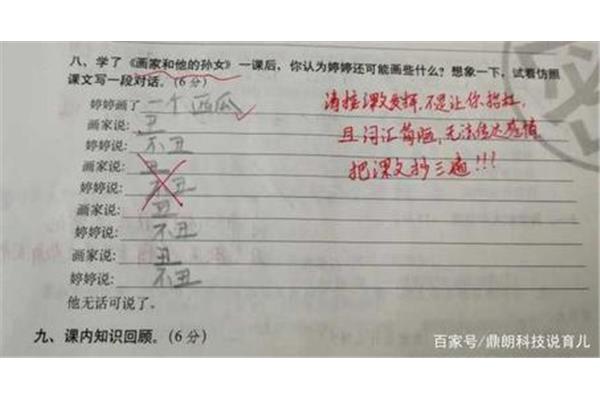 八、学了《画家和他的孙女》一课后，你认为婷婷还可能画些什么？想象一下，试着仿照
课文写一段对话。(6分)
婷婷画了一个西瓜
画家说:丑
婷婷说:不丑
画家说:丑
婷婷说:不丑
画家说:丑
婷婷说:不丑
画家说:丑
婷婷说:不丑
他无话可说了。
请按课文发挥,不是让你抬杠,
且词汇简陋,无法传达感情
把课文抄三遍!!!
九、课内知识回顾。(6分)
百家号/鼎朗科技说育儿